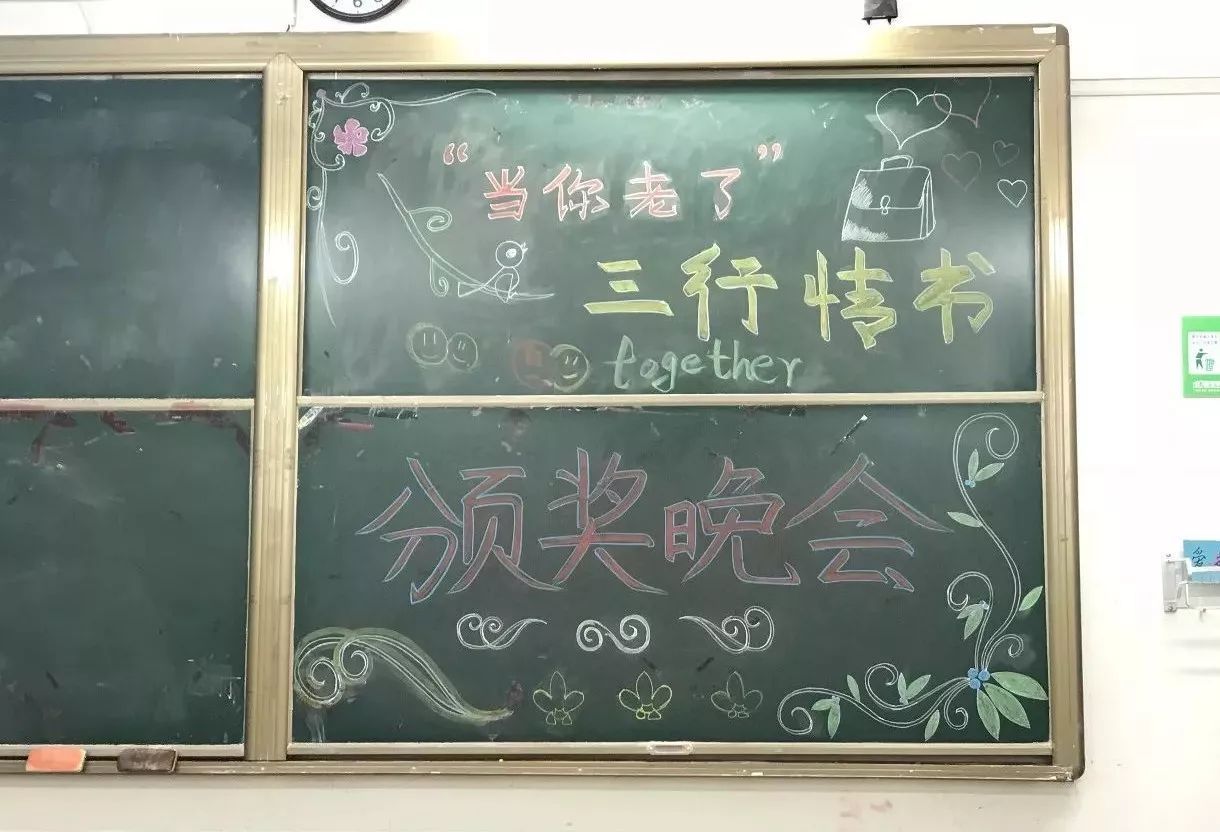 “当你老了”
三行情书
together
颁奖晚会